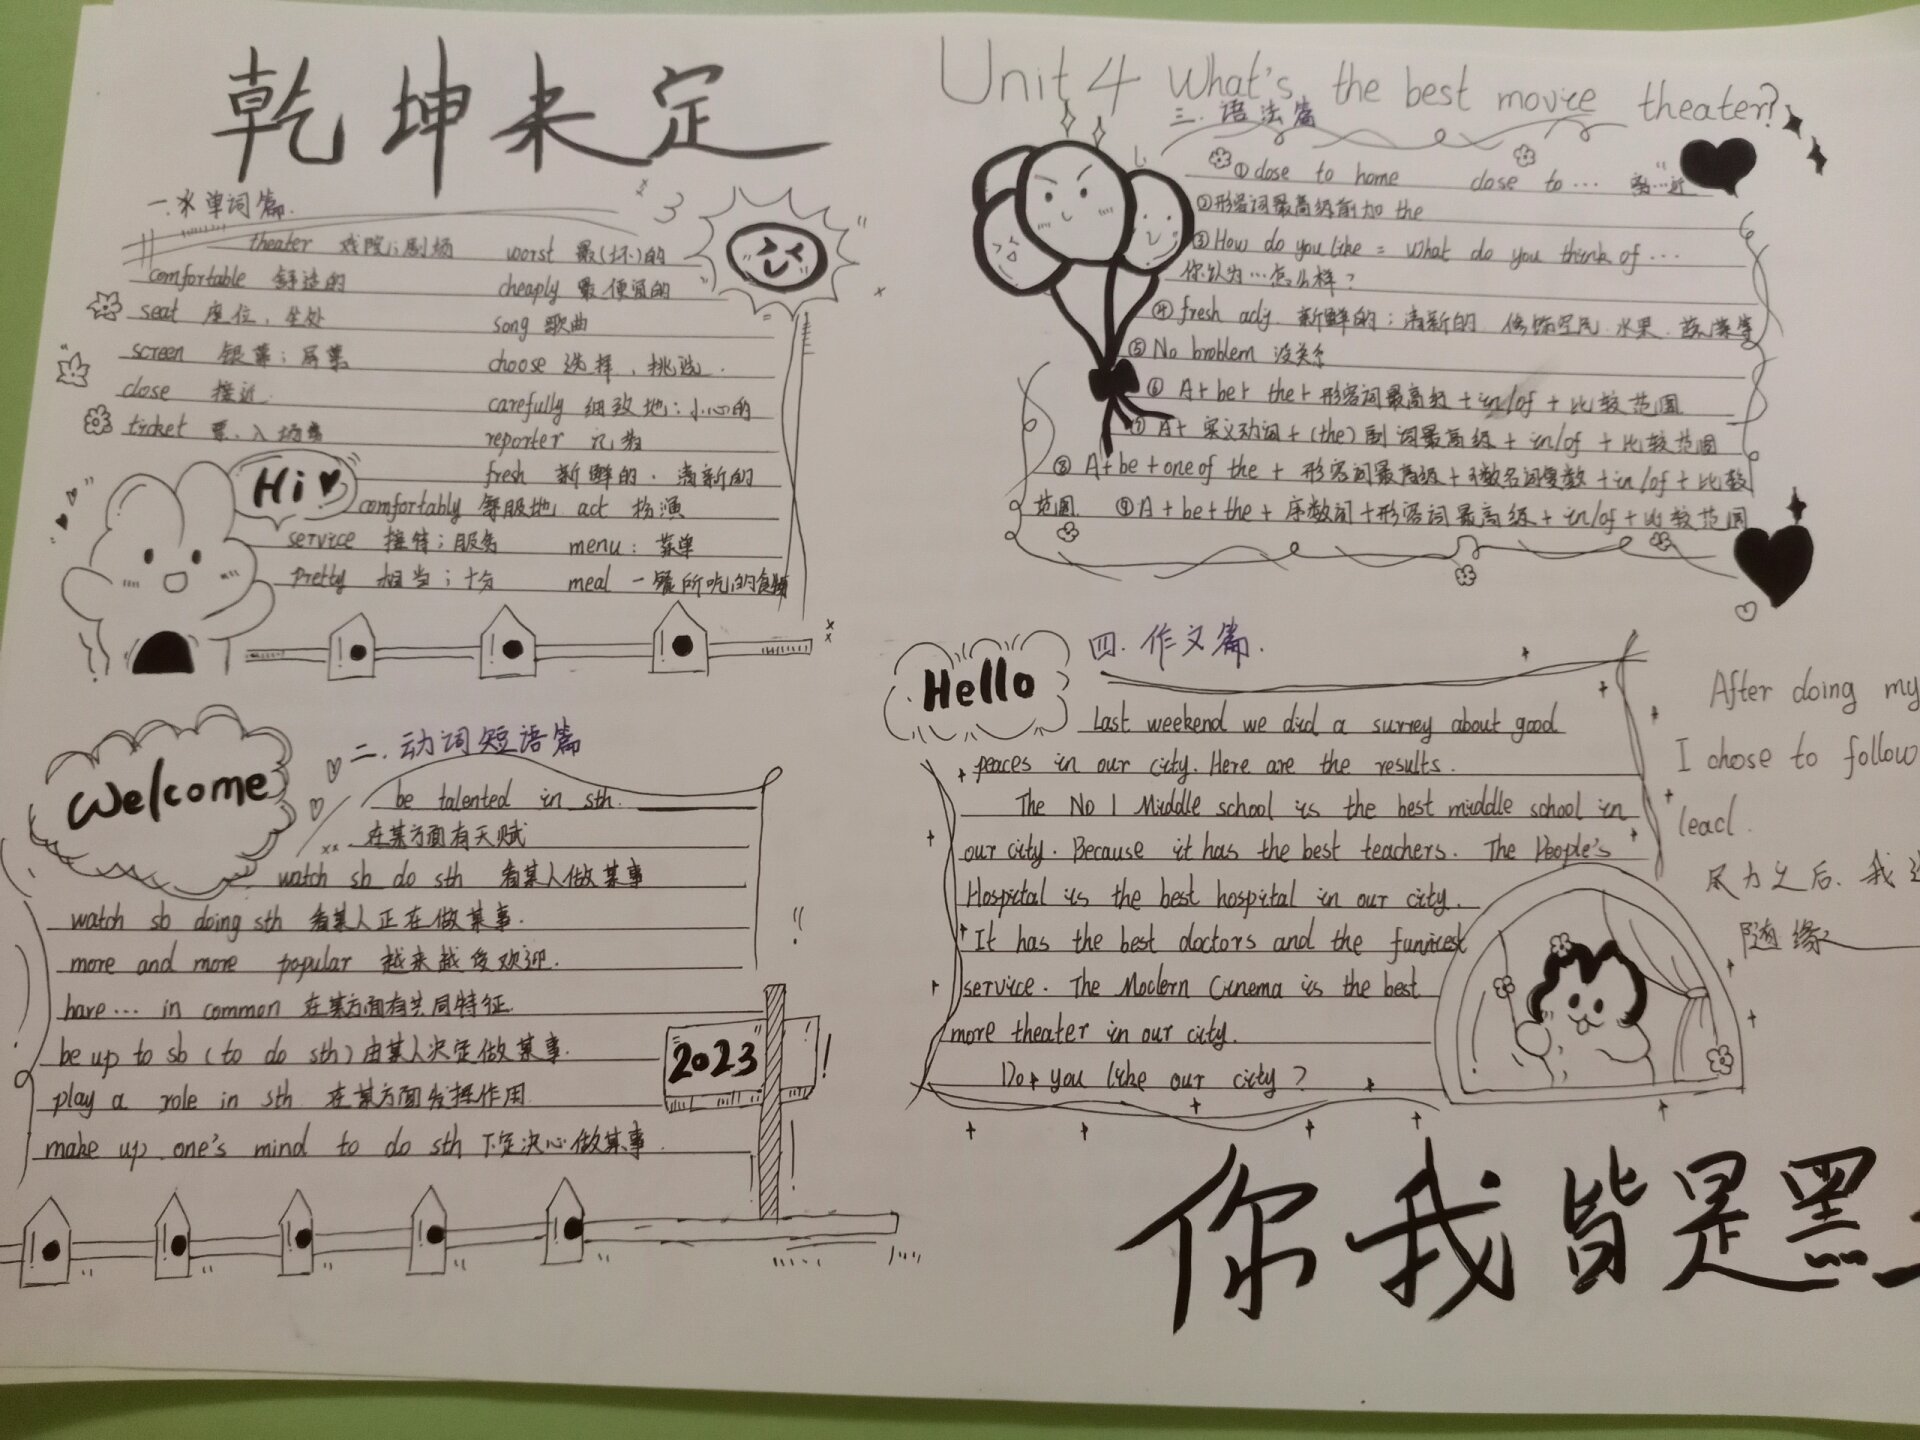 乾坤未定
一.单词篇.
theater 戏院;剧场
comfortable 舒适的
seat 座位、坐处
screen 银幕;屏幕
close 接近
ticket 票、入场券
worst 最(坏)的
cheaply 最便宜的
song 歌曲
choose 选择、挑选.
carefully 细致地;小心的
reporter 记者
fresh 新鲜的.清新的
Hi
comfortably 舒服地 act 扮演
service 接待;服务 menu: 菜单
pretty 相当;十分 meal 一餐所吃的食物
Welcome
二.动词短语篇
be talented in sth.
在某方面有天赋
watch sb do sth 看某人做某事
watch sb doing sth 看某人正在做某事.
more and more popular 越来越受欢迎.
have... in common 在某方面有共同特征.
be up to sb (to do sth) 由某人决定做某事.
play a role in sth 在某方面发挥作用.
make up one's mind to do sth 下定决心做某事.
2023
Unit 4 What's the best movie theater?
三.语法篇
①close to home close to... 离...近
②形容词最高级前加 the
③How do you like = What do you think of ...
你认为...怎么样?
④fresh adj. 新鲜的;清新的 修饰空气.水果.蔬菜等
⑤No broblem 没关系
⑥ A+ be+ the+ 形容词最高级 + in/of + 比较范围
⑦ A+ 实义动词 + (the) 副词最高级 + in/of + 比较范围
⑧ A+be+one of the + 形容词最高级+可数名词复数 +in/of + 比较
范围. ⑨A+be+the+序数词+形容词最高级+in/of+比较范围
Hello
四.作文篇.
Last weekend we did a survey about good
peaces in our city. Here are the results.
The No 1 Middle school is the best middle school in
our city. Because it has the best teachers. The People's
Hospital is the best hospital in our city.
It has the best doctors and the funnicest
service. The Modern Cinema is the best
more theater in our city.
Do you like our city?
After doing my
I chose to follow
lead.
尽力之后.我
随缘
你我皆是黑